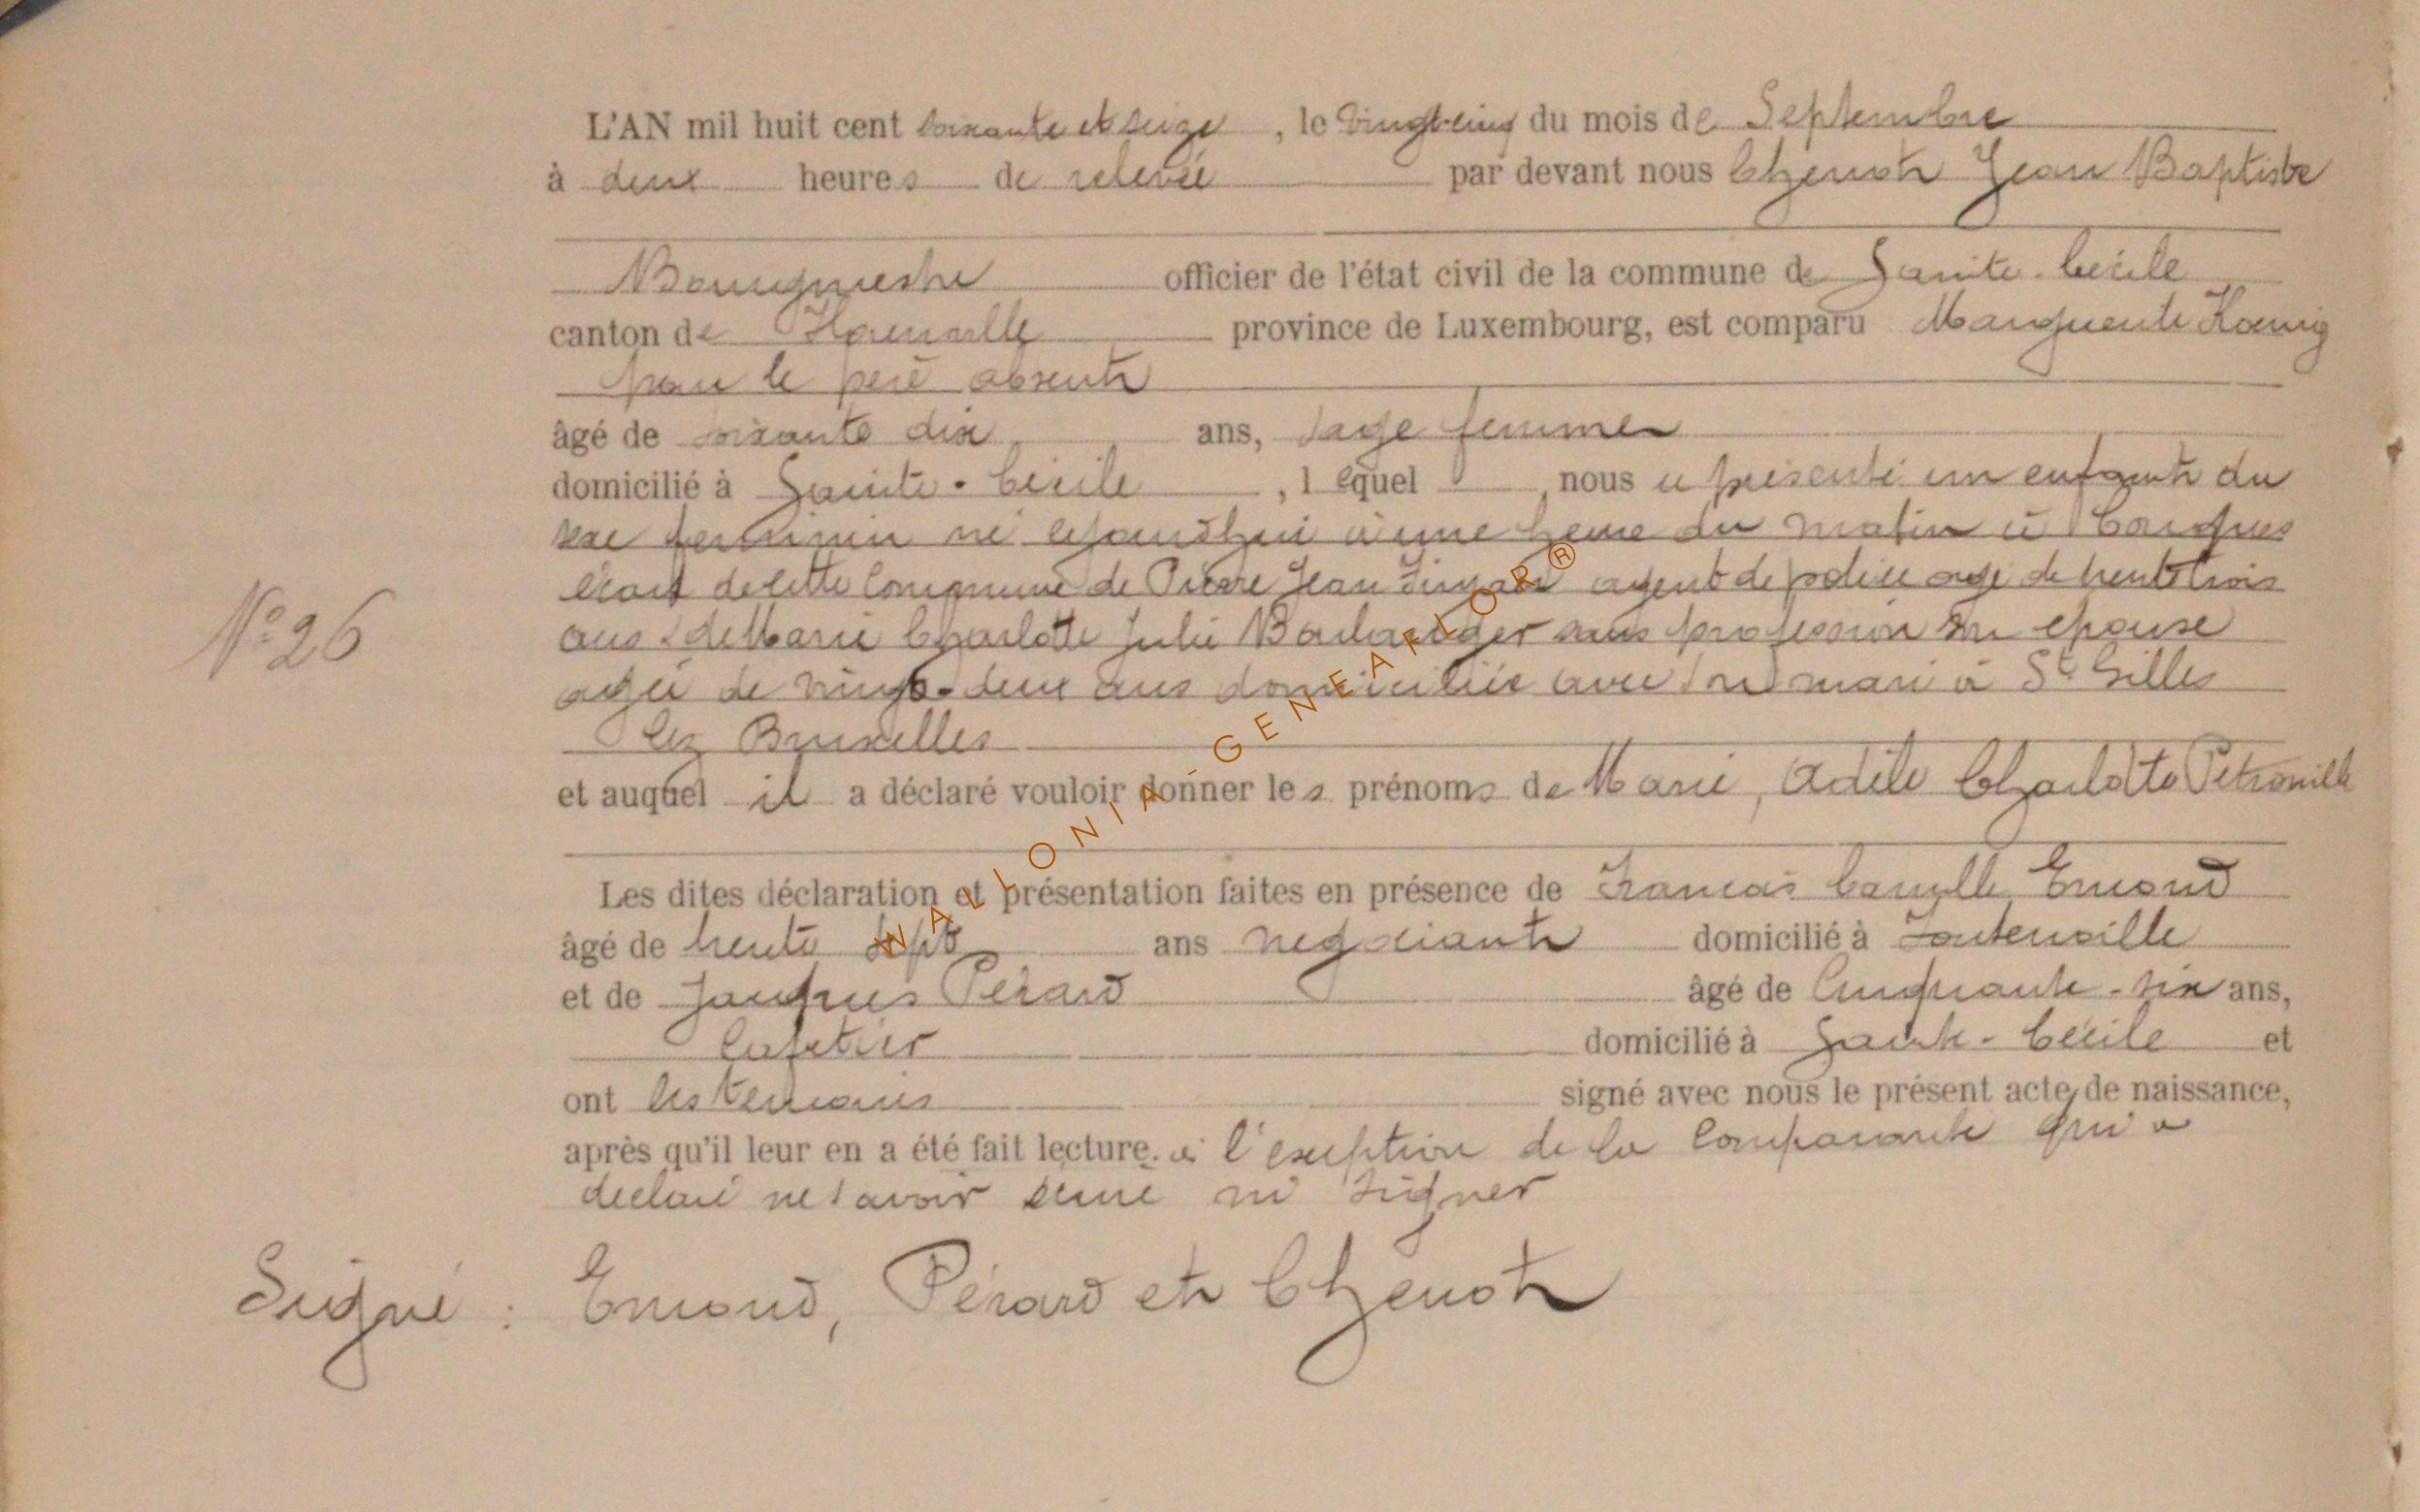 L'AN mil huit cent soixante et seize, le vingt-cinq du mois de Septembre
à deux heures de relevée par devant nous Chenot Jean Baptiste
Bourgmestre officier de l'état civil de la commune de Sainte-Cécile
canton de Florenville province de Luxembourg, est comparu Marguerite Kœnig
pour le père absent
âgé de soixante dix ans, sage femme
domicilié à Sainte-Cécile, lequel nous a présenté un enfant du
sexe feminin né cejourd'hui à une heure du matin à Conques
écart de cette Commune de Pierre Jean agent de police agé de trente trois
ans & de Marie Charlotte Julie Boulanger sans profession son epouse
agée de vingt-deux ans domiciliée avec son mari à St Gilles
lez Bruxelles
et auquel il a déclaré vouloir donner les prénoms de Marie, Adèle Charlotte Pétronille
Les dites déclaration et présentation faites en présence de Francois Camille Emond
âgé de trente sept ans negociant domicilié à Fontenoille
et de Jacques Pérard âgé de Cinquante-six ans,
Cafetier domicilié à Sainte-Cécile et
ont les temoins signé avec nous le présent acte de naissance,
après qu'il leur en a été fait lecture. à l'exception de la Comparante qui a
declaré ne savoir écrire ni signer
N° 26
Signé : Emond, Pérard et Chenot
WALLONIA - GENEAFLOR ®